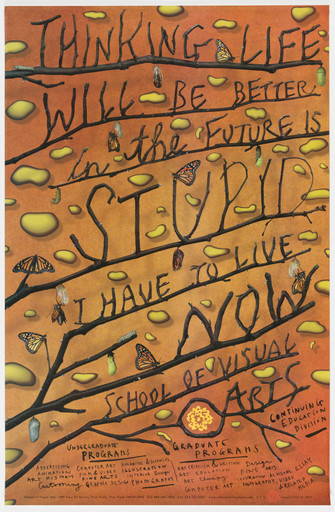 THINKING LIFE
WILL BE BETTER
in the FUTURE IS
STUPID.
I HAVE TO LIVE
NOW
SCHOOL OF VISUAL
ARTS
CONTINUING
EDUCATION
DIVISION
UNDERGRADUATE
PROGRAMS
GRADUATE
PROGRAMS
ADVERTISING
ANIMATION
ART HISTORY
Cartooning
COMPUTER ART
FILM & VIDEO
FINE ARTS
ILLUSTRATION
Interior Design
PHOTOGRAPHY
Design
ART EDUCATION
FINE ARTS
ART therapy
COMPUTER ART
PHOTOGRAPHY, VIDEO